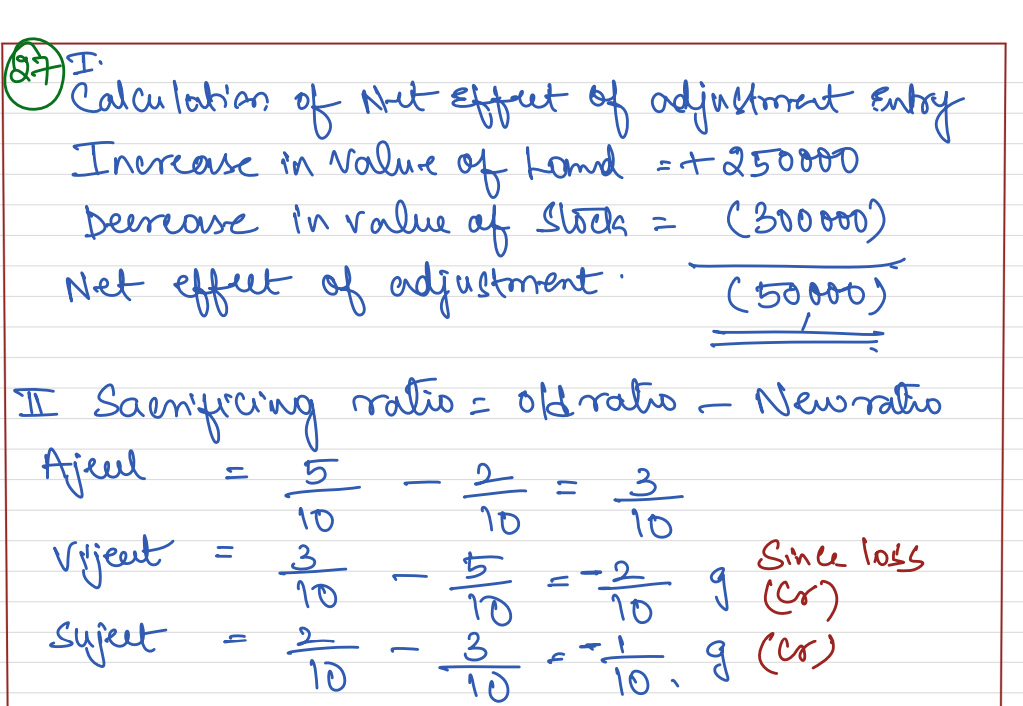 27 I.
Calculation of Net Effect of adjustment Entry
Increase in Value of Land = + 250000
Decrease in value of Stock = (300000)
Net effect of adjustment. (50,000)
II Sacrificing ratio = old ratio - New ratio
Ajeet = 5/10 - 2/10 = 3/10
Vijeet = 3/10 - 5/10 = -2/10 g Since loss (Cr)
Sujeet = 2/10 - 3/10 = -1/10. g (Cr)